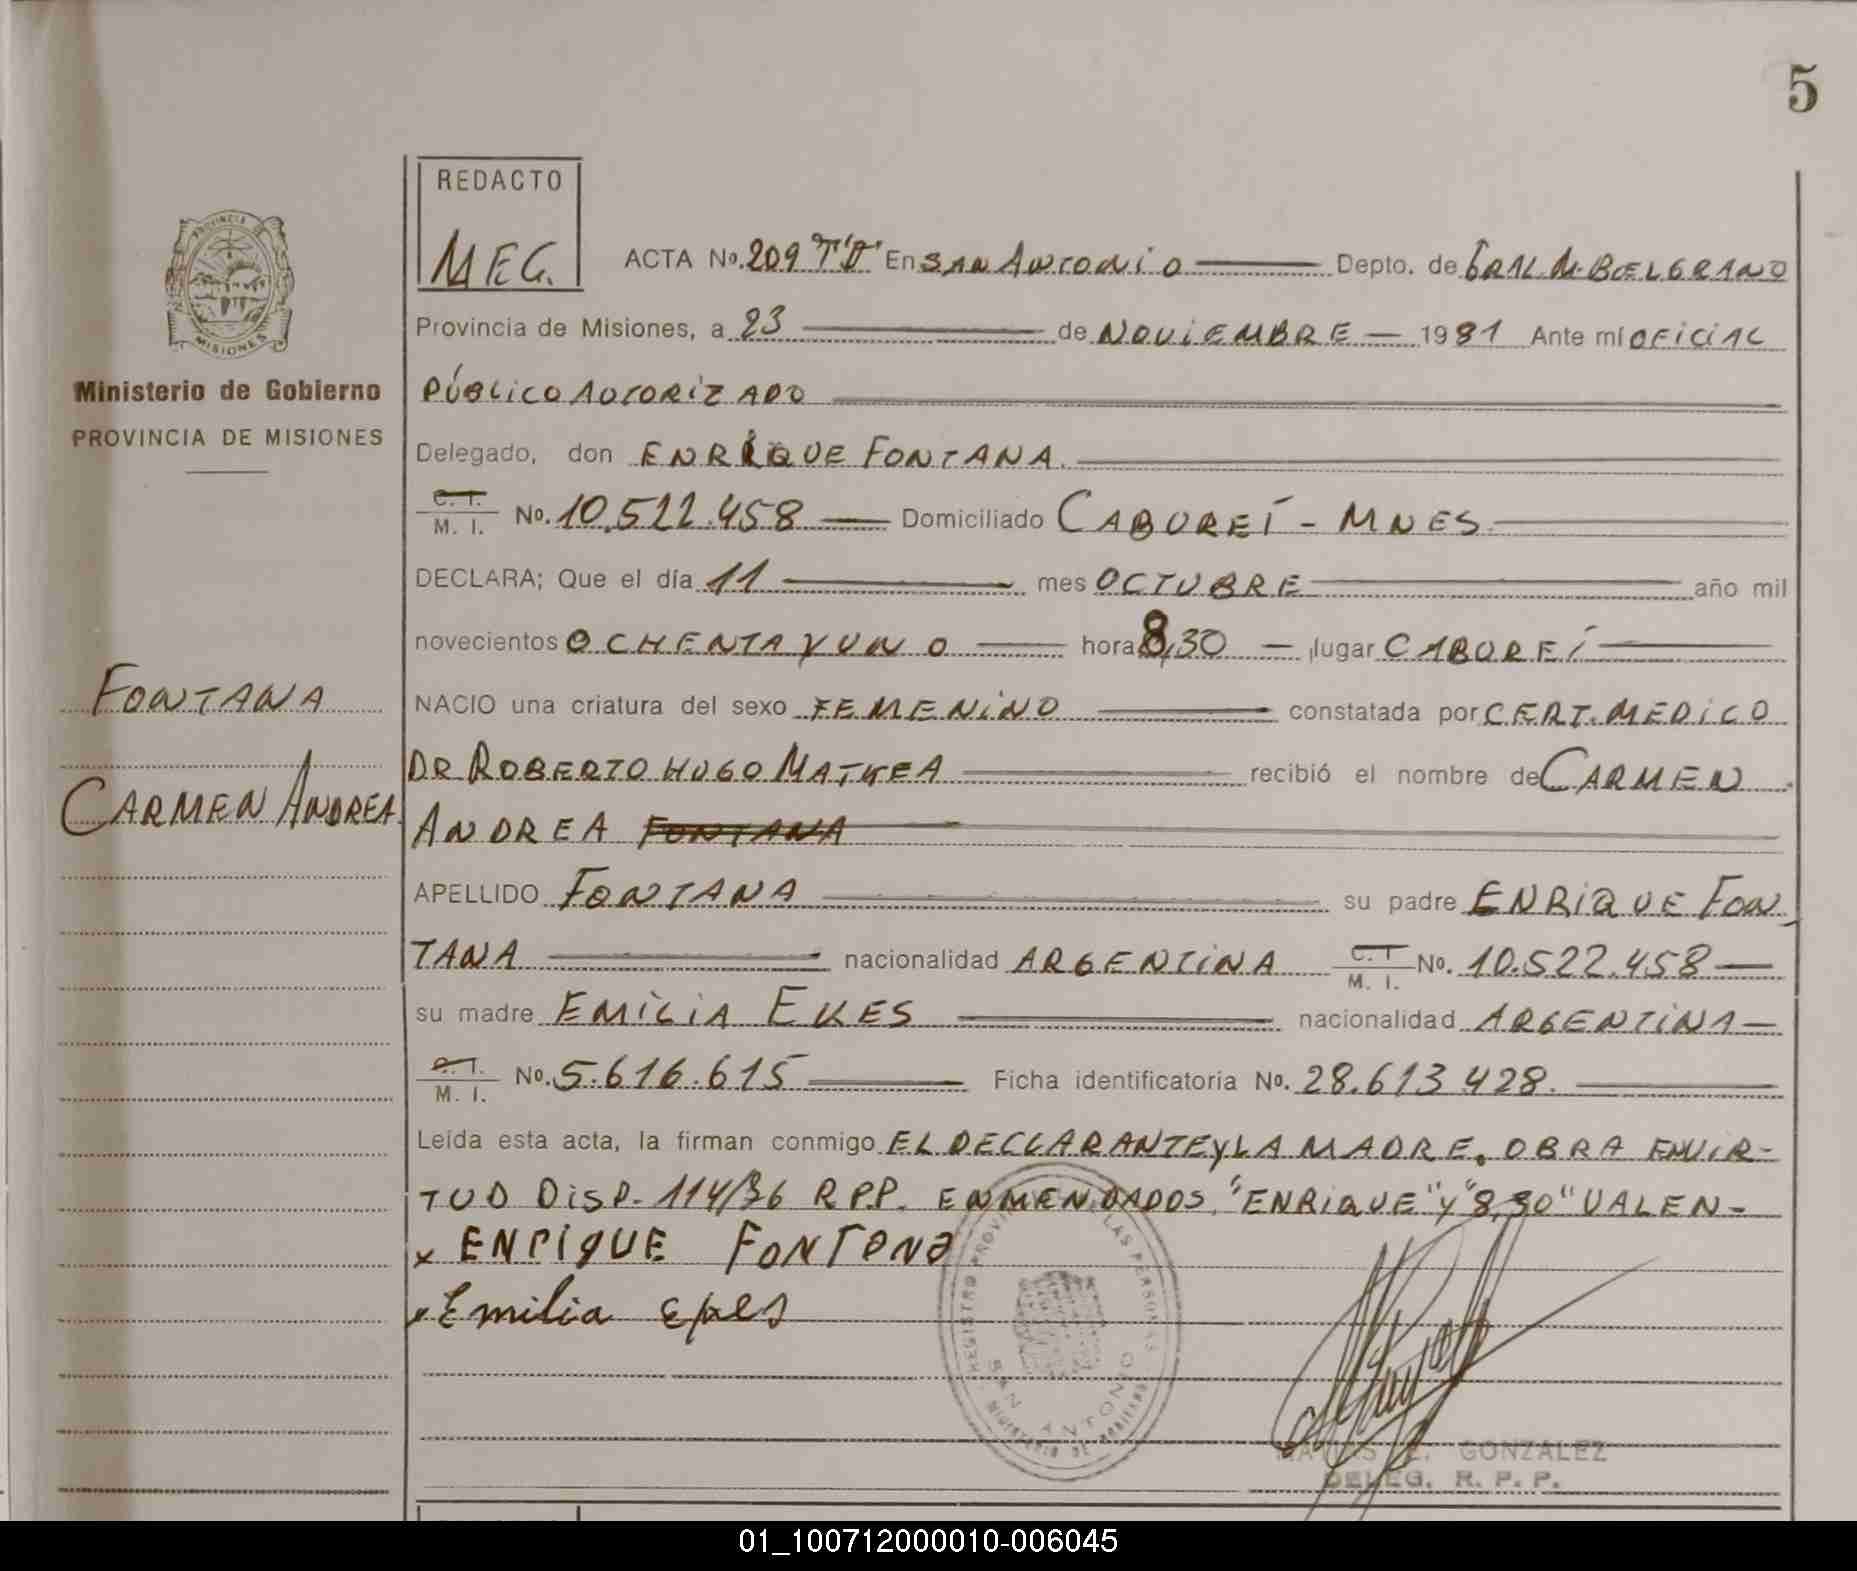 5
REDACTO
MEG.
ACTA No. 209 T"D" En SAN ANTONIO Depto. de GRAL M. BELGRANO
Provincia de Misiones, a 23 de NOVIEMBRE 1981 Ante mí OFICIAL
PÚBLICO AUTORIZADO
Delegado, don ENRIQUE FONTANA.
C. I. / M. I. No. 10.522.458 Domiciliado CABUREÍ - MNES.
DECLARA; Que el día 11 mes OCTUBRE año mil
novecientos OCHENTA Y UNO hora 8,30 lugar CABUREÍ
NACIO una criatura del sexo FEMENINO constatada por CERT. MEDICO
DR ROBERTO HUGO recibió el nombre de CARMEN
ANDREA FONTANA
APELLIDO FONTANA su padre ENRIQUE FON
TANA nacionalidad ARGENTINA C. I / M. I. No. 10.522.458
su madre EMILIA EKES nacionalidad ARGENTINA
C. I. / M. I. No. 5.616.615 Ficha identificatoria No. 28.613.428.
Leída esta acta, la firman conmigo EL DECLARANTE Y LA MADRE. OBRA EN VIR-
TUD DISP. 114/36 R.P.P. ENMENDADOS "ENRIQUE" Y "8,30" VALEN-
x ENRIQUE FONTANA
x Emilia Ekes
REGISTRO PROVINCIAL DE LAS PERSONAS
SAN ANTONIO
MINISTERIO DE
GONZALEZ
DELEG. R. P. P.
PROVINCIA DE
MISIONES
Ministerio de Gobierno
PROVINCIA DE MISIONES
FONTANA
CARMEN ANDREA.
01_100712000010-006045